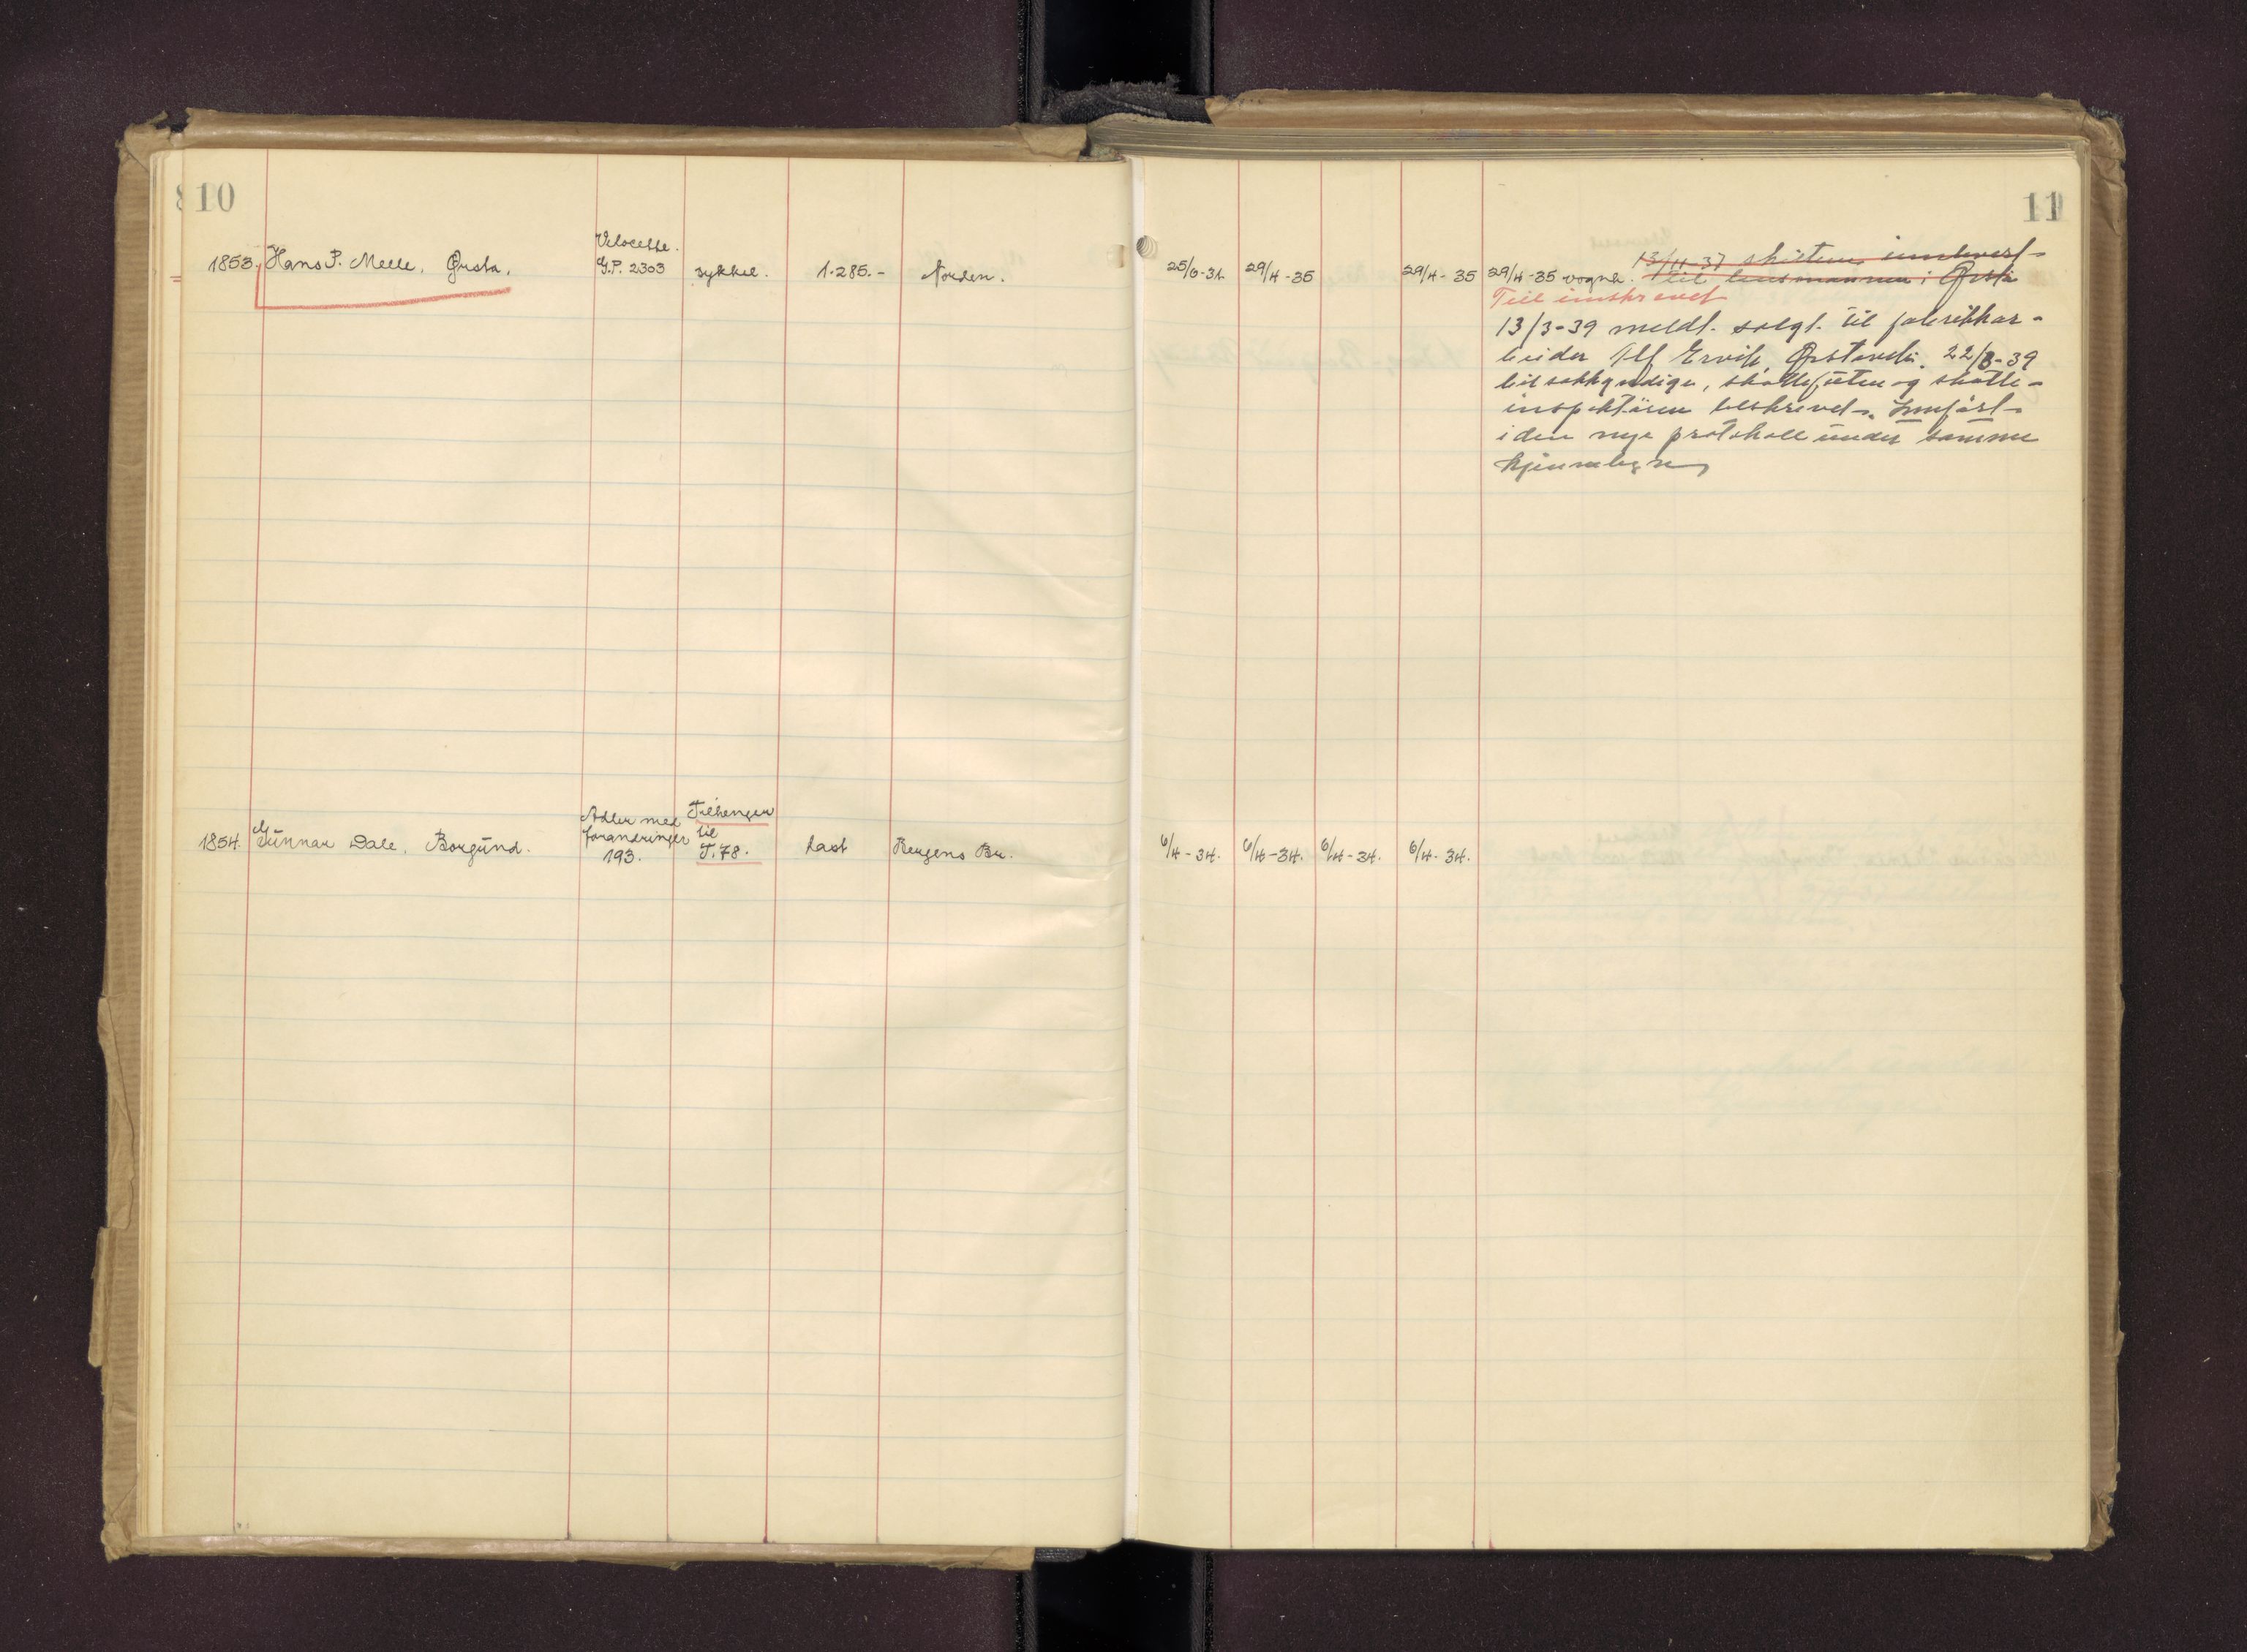 10
1853. Hans P. Melle, Ørsta.
Velocette.
G.P. 2303
sykkel.
1.285.-
Norden.
1854. Gunnar Dale, Borgund.
Adler med
forandringer
193.
Tilhenger
til
T.78.
last
Bergens Br.
11
25/6-31.
29/4-35
29/4-35
29/4-35 vognk. 13/4-37 skiltene innlevert
til lensmannen i Ørsta
Feil innskrevet
13/3-39 meldt solgt til fabrikkar-
beider Alf Ervik, Ørstavik. 22/3-39
bilsakkyndige, skattefuten og skatte-
inspektören beskrevet. Innfört
i den nye protokoll under samme
kjennetegn
6/4-34.
6/4-34.
6/4-34.
6/4-34.